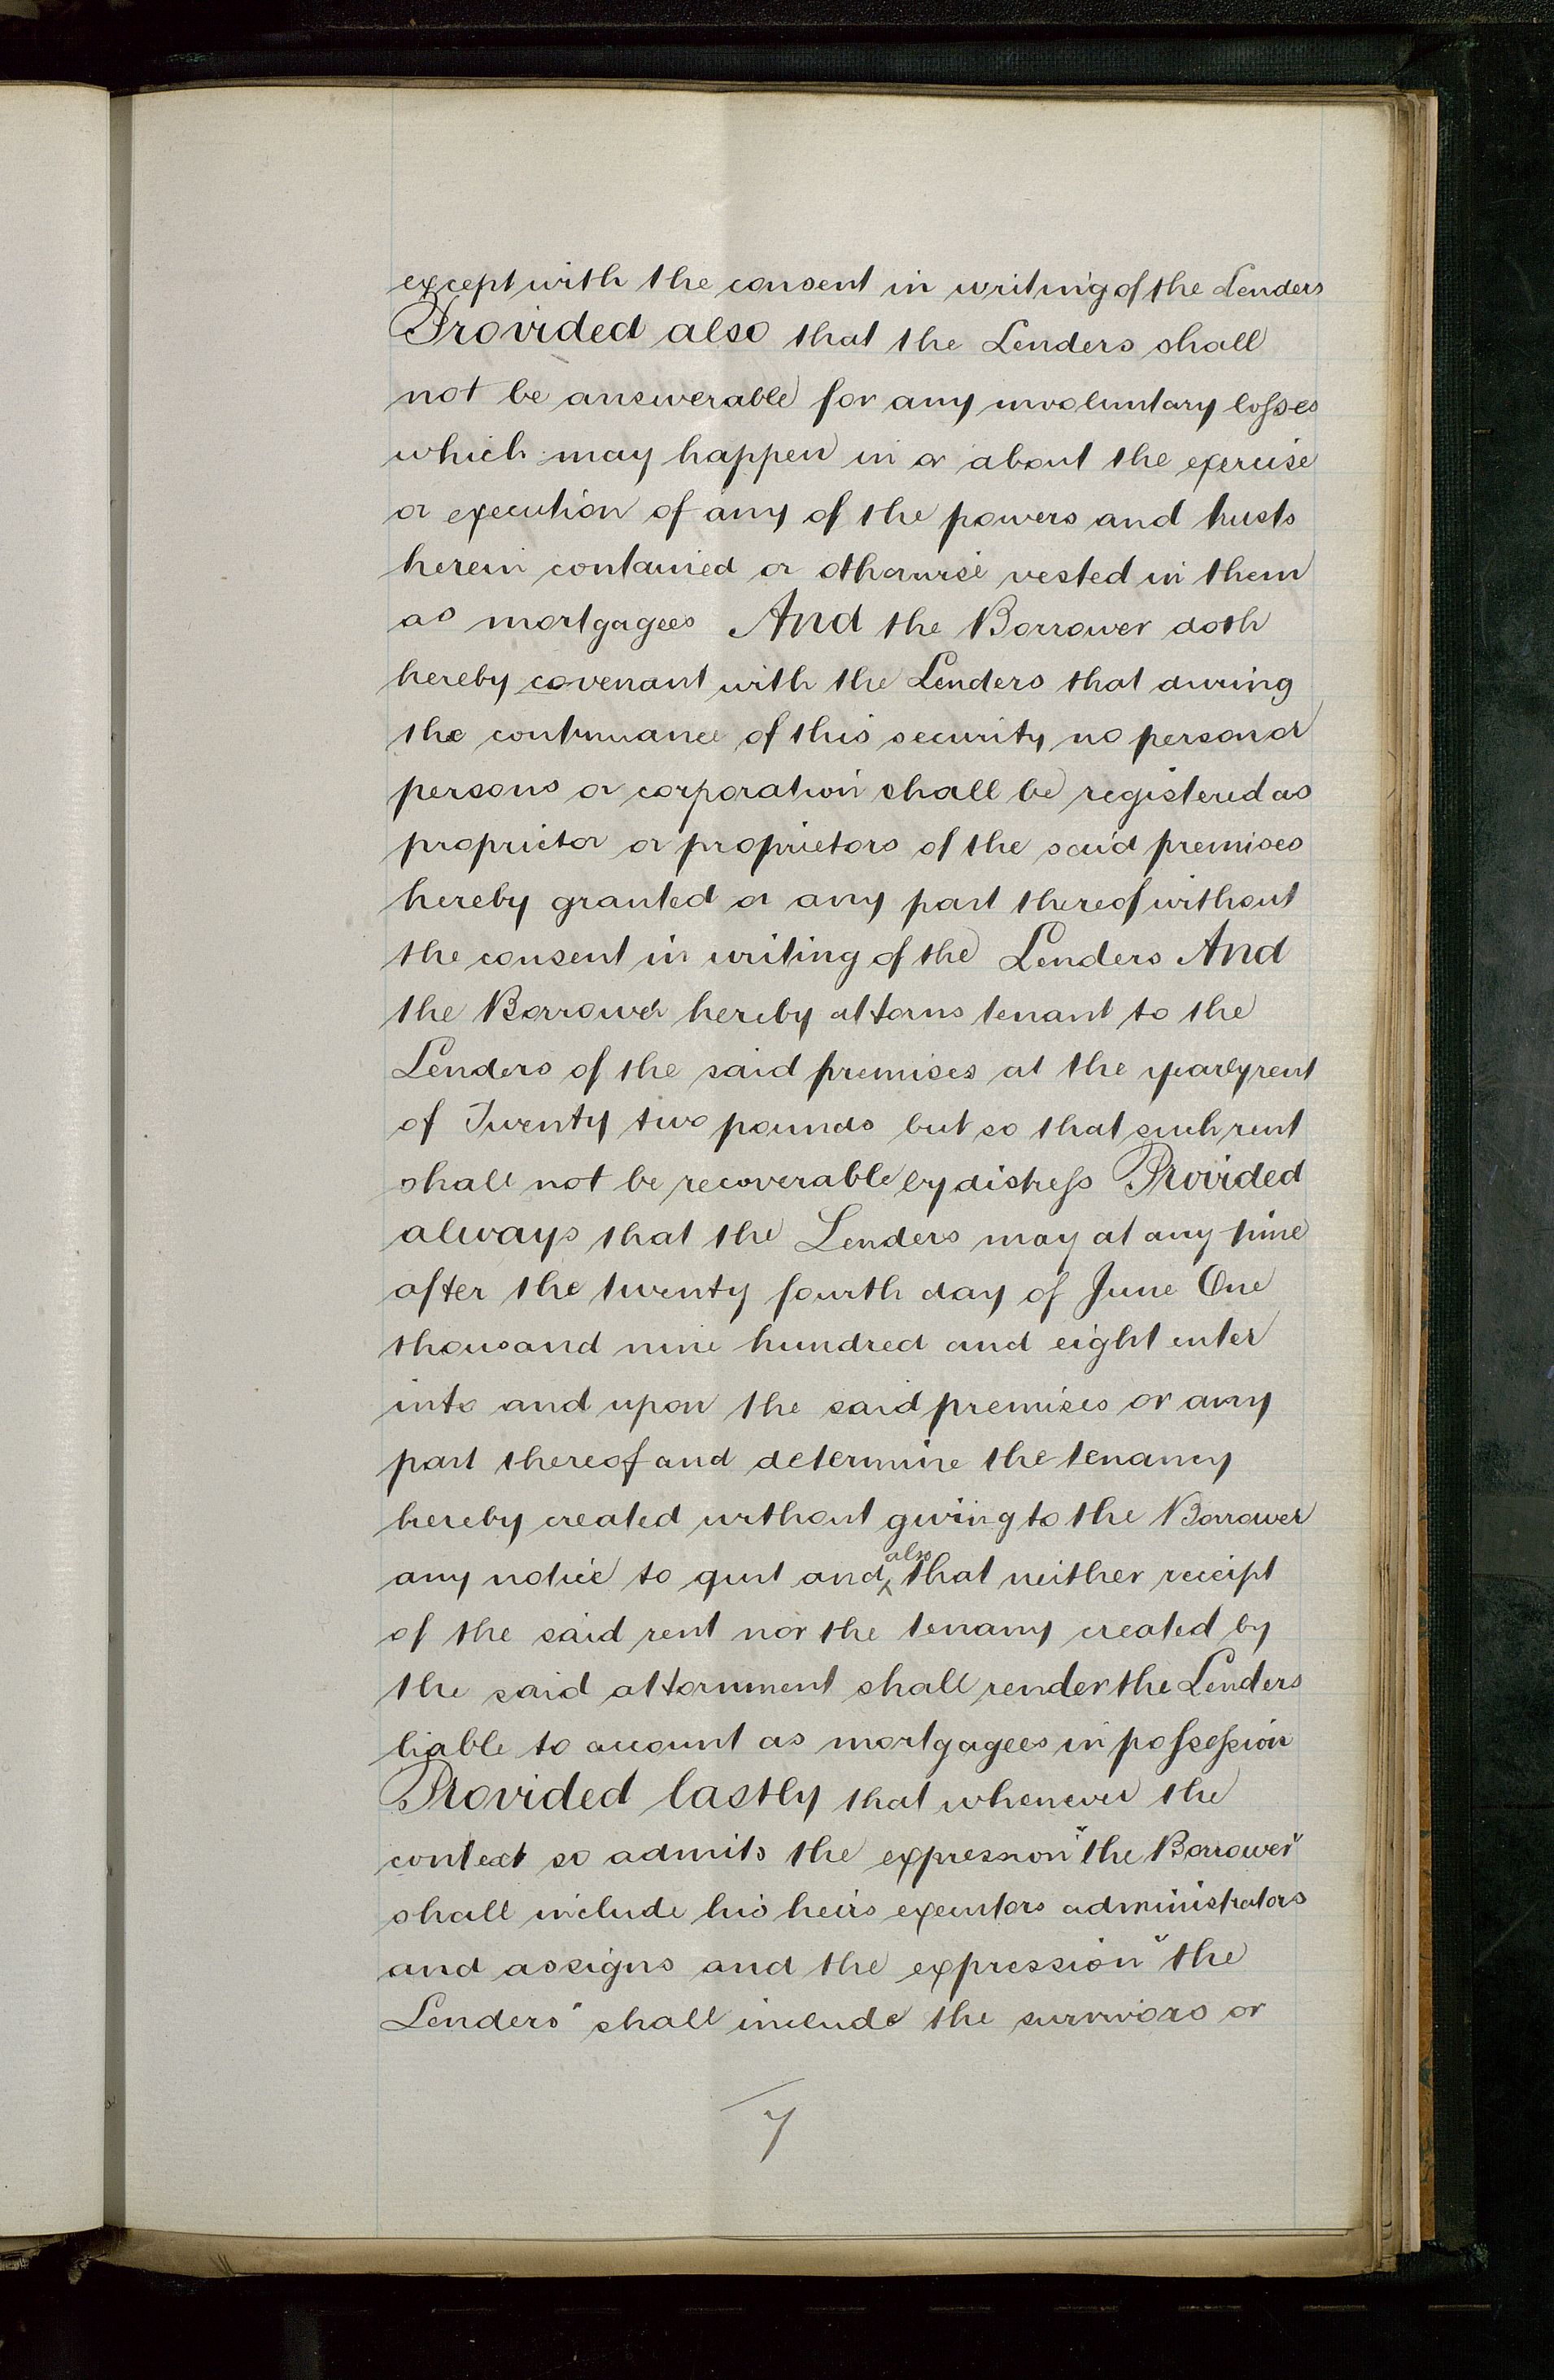 except with the consent in writing of the Lenders
Provided also that the Lenders shall
not be answerable for any involuntary losses
which may happen in or about the exercise
or execution of any of the powers and trusts
herein contained or otherwise vested in them
as mortgagees And the Borrower doth
hereby covenant with the Lenders that during
the continuance of this security no person or
persons or corporation shall be registered as
proprietor or proprietors of the said premises
hereby granted or any part thereof without
the consent in writing of the Lenders And
the Borrower hereby attorns tenant to the
Lenders of the said premises at the yearly rent
of Twenty two pounds but so that such rent
shall not be recoverable by distress Provided
always that the Lenders may at any time
after the twenty fourth day of June One
thousand nine hundred and eight enter
into and upon the said premises or any
part thereof and determine the tenancy
hereby created without giving to the Borrower
any notice to quit and also that neither receipt
of the said rent nor the tenancy created by
the said attornment shall render the Lenders
liable to account as mortgagees in possession
Provided lastly that whenever the
context so admits the expression "the Borrower"
shall include his heirs executors administrators
and assigns and the expression "the
Lenders" shall include the survivors or
7